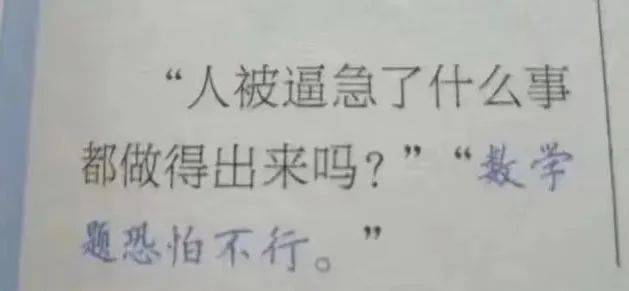 “人被逼急了什么事
都做得出来吗？”“数学
题恐怕不行。”